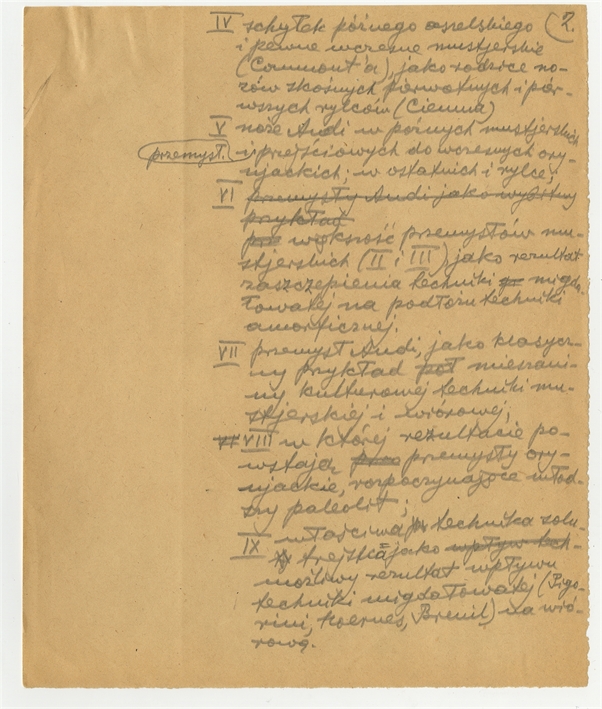 2.
IV schyłek późnego aszelskiego
i pewne wczesne mustjerskie
(Commont'a), jako rodzice no-
żów skośnych pierwotnych i pier-
wszych rylców (Ciemna)
V noże Audi w późnych mustjerskich
przemysł. i przejściowych do wczesnych ory-
njackich; w ostatnich i rylce;
VI przemysły Audi jako wybitny
przykład
prz większość przemysłów mu-
stjerskich (II i III) jako rezultat
zaszczepienia techniki migda-
łowatej na podłożu techniki
amorficznej.
VII przemysł Audi, jako klasycz-
ny przykład poł mieszani-
ny kulturowej techniki mu-
stjerskiej i wiórowej,
VIII w której rezultacie po-
wstają przemysły ory-
njackie, rozpoczynające młod-
szy paleolit;
IX właściwa technika solu-
trejska jako wpływ tech-
możliwy rezultat wpływu
techniki migdałowatej (Pigo-
rini, Hoernes, Breuil) na wió-
rową.